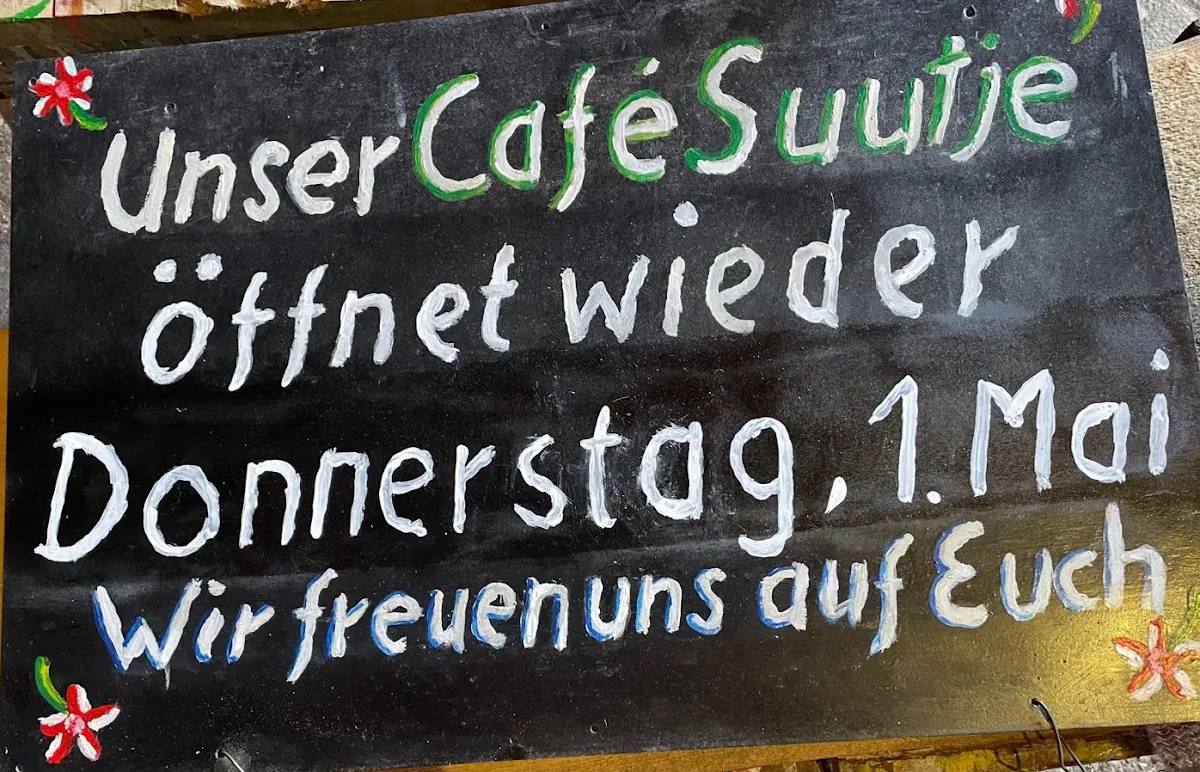 Unser Café Suutje
öffnet wieder
Donnerstag, 1. Mai
Wir freuen uns auf Euch